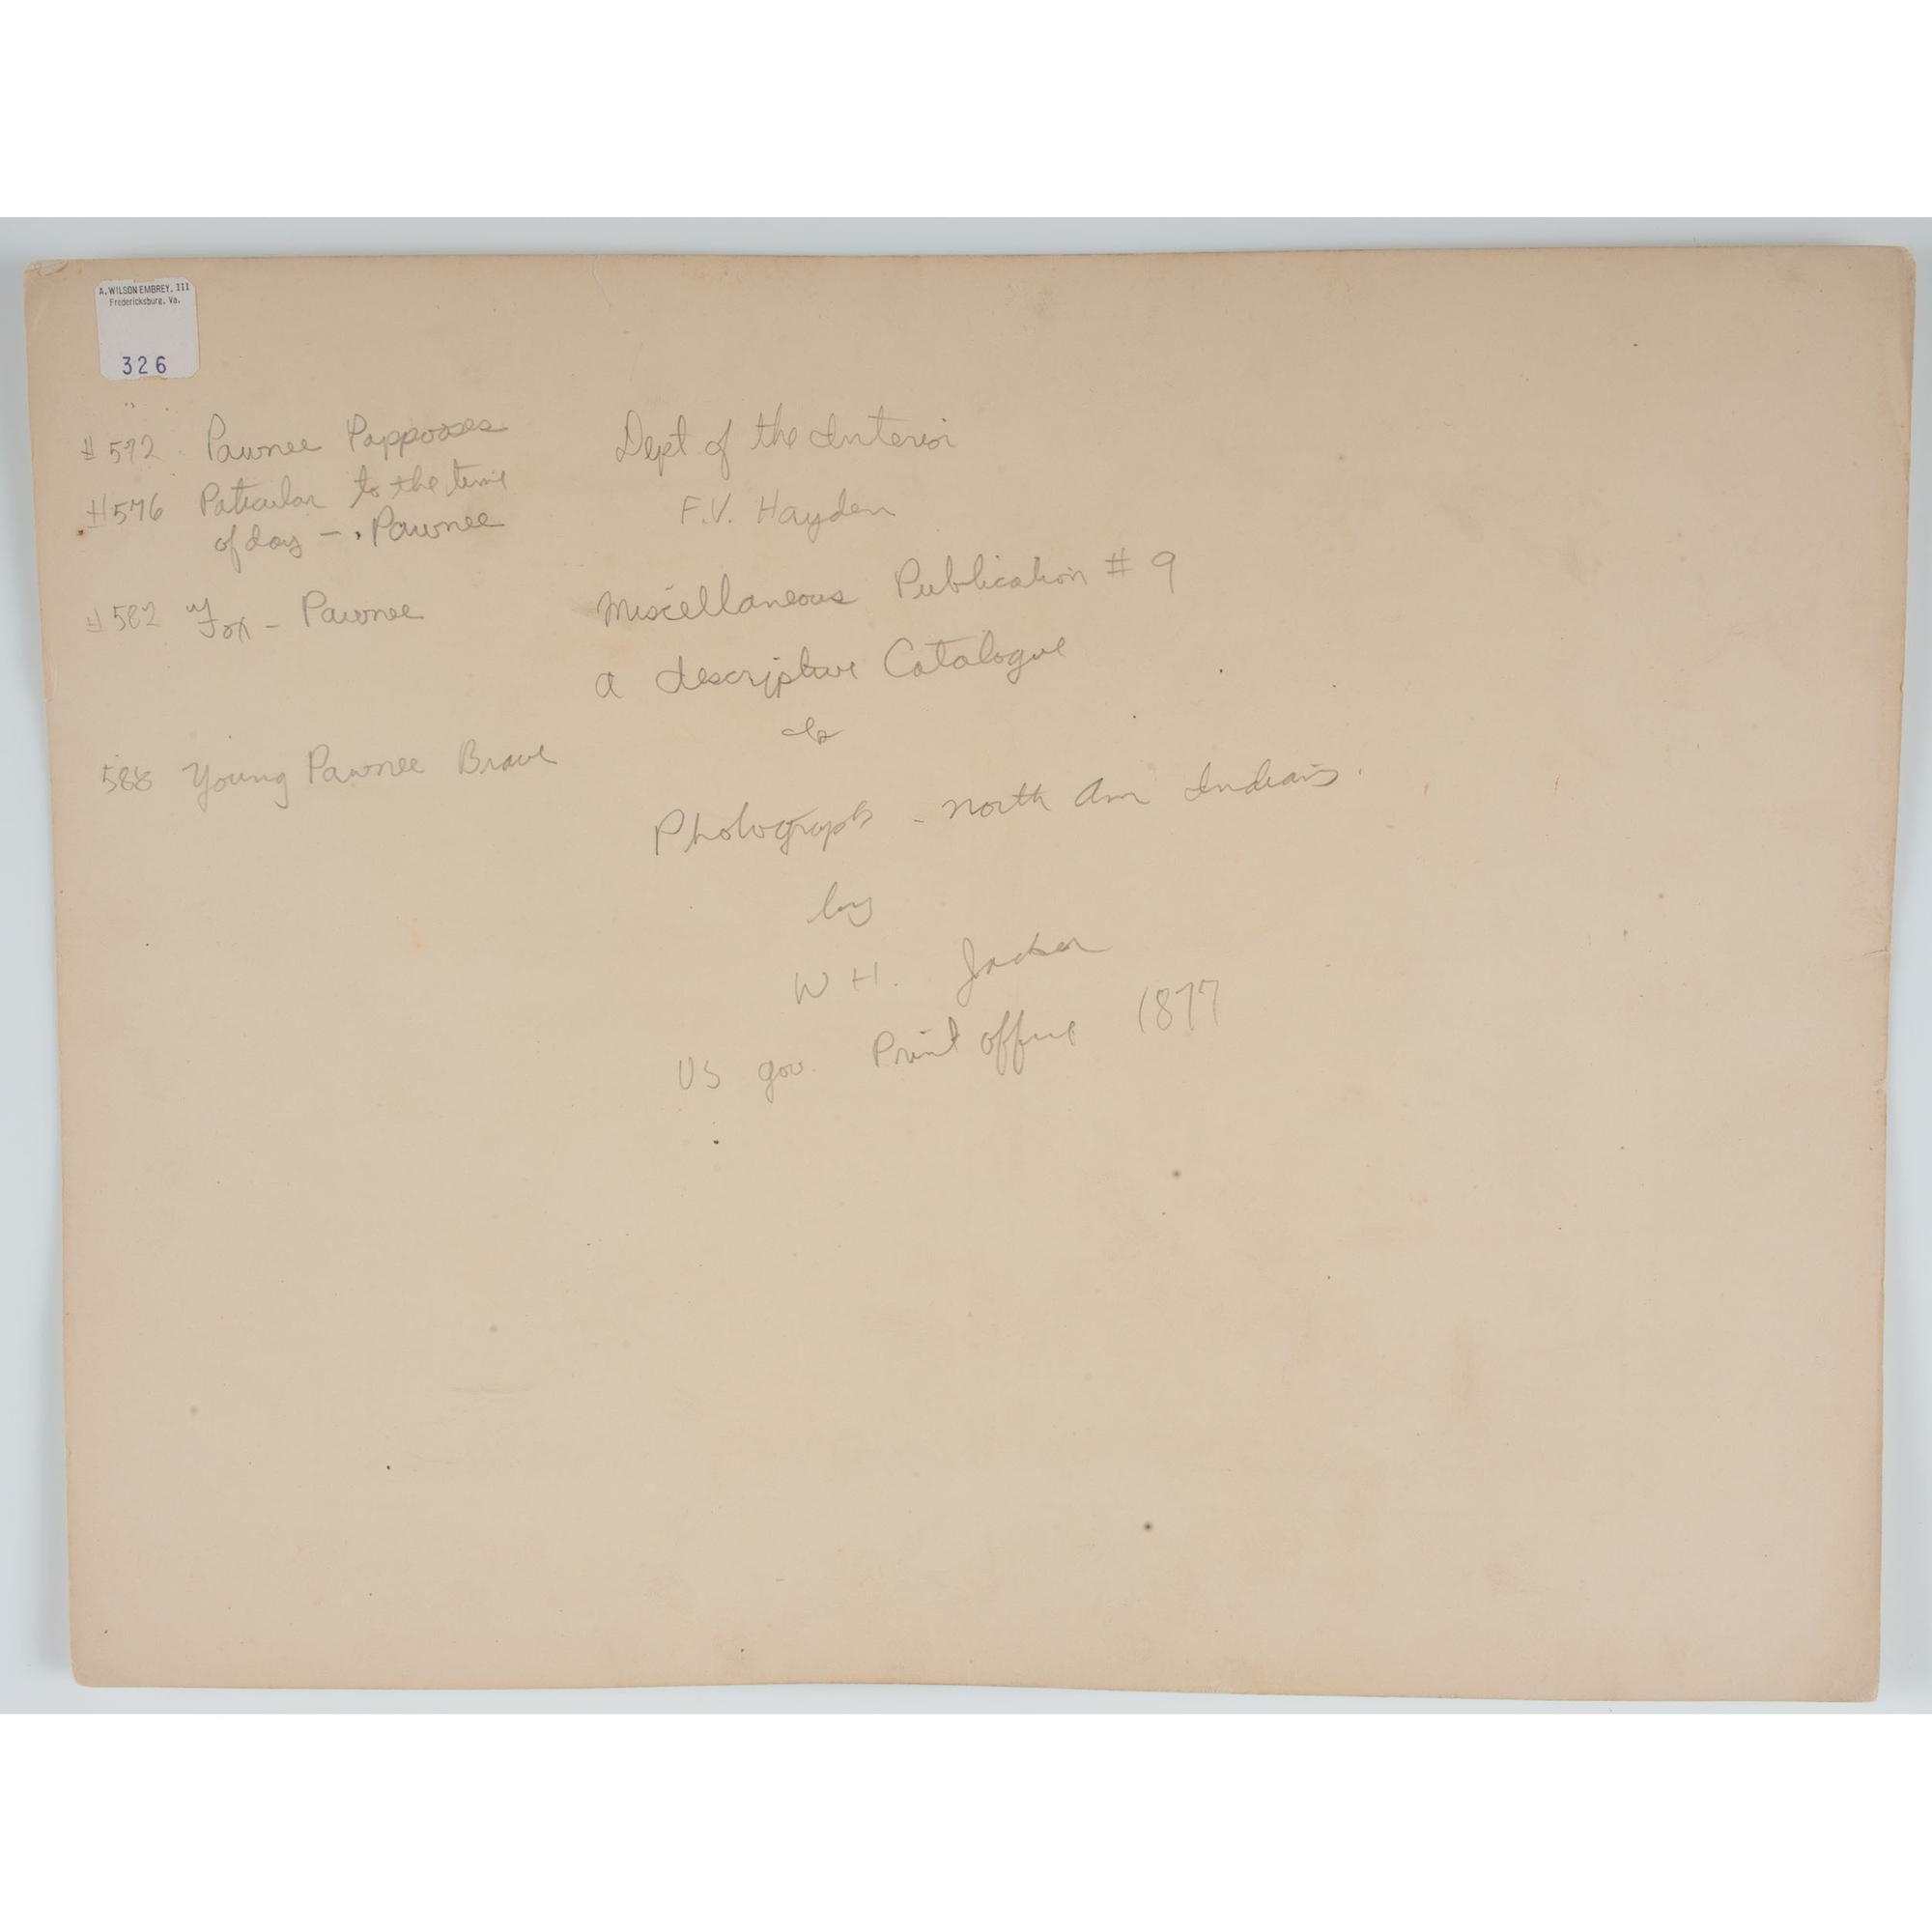 A. WILSON EMBREY, III
Fredericksburg, Va.
326
#572 Pawnee Pappooses
#576 Paticular to the time
of day - . Pawnee
#582 Fox - Pawnee
588 Young Pawnee Brave
Dept of the Interior
F.V. Hayden
Miscellaneous Publication # 9
a descriptive Catalogue
of
Photographs - North Am Indians.
by
W H. Jackson
US gov. Print office 1877